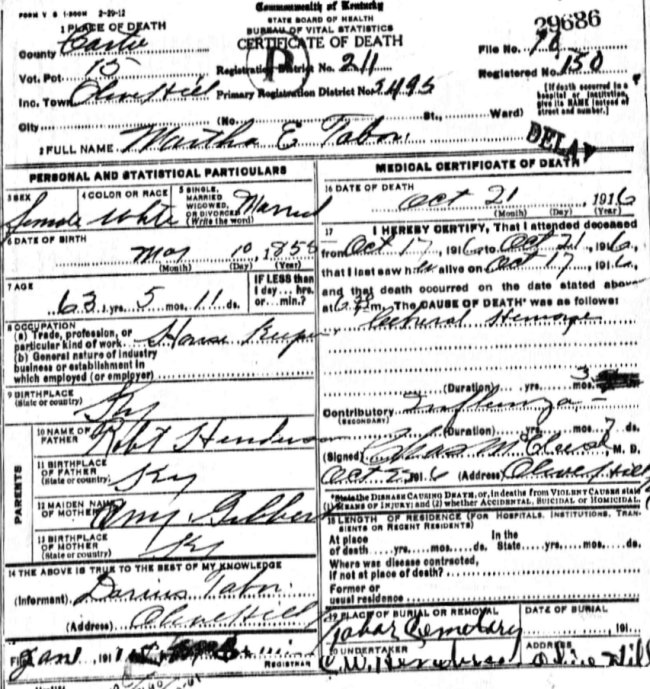 FORM V S 1-500M 2-29-12
Commonwealth of Kentucky
STATE BOARD OF HEALTH
BUREAU OF VITAL STATISTICS
CERTIFICATE OF DEATH
29686
1 PLACE OF DEATH
County Carter
Vot. Pct 15
Inc. Town Olive Hill
City
Registration District No. 211
Primary Registration District No. 2495
(No. St., Ward)
File No. 78
Registered No. 150
[If death occurred in a hospital or institution, give its NAME instead of street and number.]
2 FULL NAME Martha E Tabor
PERSONAL AND STATISTICAL PARTICULARS
3 SEX female
4 COLOR OR RACE White
5 SINGLE, MARRIED WIDOWED, OR DIVORCED (Write the word) Married
6 DATE OF BIRTH
May 10, 1853
(Month) (Day) (Year)
7 AGE
63 yrs. 5 mos. 11 ds.
IF LESS than 1 day... hrs. or... min.?
8 OCCUPATION
(a) Trade, profession, or particular kind of work House Keeper
(b) General nature of industry business or establishment in which employed (or employer)
9 BIRTHPLACE (State or country) Ky
PARENTS
10 NAME OF FATHER Robt Henderson
11 BIRTHPLACE OF FATHER (State or country) Ky
12 MAIDEN NAME OF MOTHER Amy Gilbert
13 BIRTHPLACE OF MOTHER (State or country) Ky
14 THE ABOVE IS TRUE TO THE BEST OF MY KNOWLEDGE
(Informant) Darius Tabor
(Address) Olive Hill
Jan 191
REGISTRAR
MEDICAL CERTIFICATE OF DEATH
16 DATE OF DEATH
Oct 21, 1916
(Month) (Day) (Year)
17 I HEREBY CERTIFY, That I attended deceased
from Oct 17, 1916 to Oct 21, 1916,
that I last saw h alive on Oct 17, 1916,
and that death occurred on the date stated above
at m. The CAUSE OF DEATH* was as follows:
(Duration) yrs. mos. 3
Contributory Influenza
(SECONDARY)
(Duration) yrs. mos. 7 ds.
(Signed) M. D.
Oct 1916 (Address) Olive Hill
*State the DISEASE CAUSING DEATH, or, in deaths from VIOLENT CAUSES state (1) MEANS OF INJURY; and (2) whether ACCIDENTAL, SUICIDAL or HOMICIDAL.
18 LENGTH OF RESIDENCE (FOR HOSPITALS, INSTITUTIONS, TRANSIENTS OR RECENT RESIDENTS)
At place of death yrs. mos. ds. In the State yrs. mos. ds.
Where was disease contracted, if not at place of death?
Former or usual residence
19 PLACE OF BURIAL OR REMOVAL Tabor Cemetary
DATE OF BURIAL
191
20 UNDERTAKER C. W. Henderson
ADDRESS Olive Hill